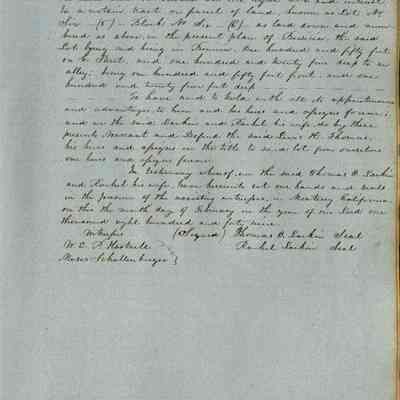 to a certain tract or parcel of land known as Lot No
Six (6) Block No Six (6) as laid down and num
bered as above in the present plan of Benicia, the said
Lot lying and being in Benicia, One hundred and fifty feet
on Street, and one hundred and twenty five deep to an
alley; being one hundred and fifty feet front and one
hundred and twenty five feet deep
To have and to hold with all its appurtenances
and advantages to him and his heirs and assigns forever;
and we the said Larkin and Rachel his wife do by these
presents Warrant and Defend the said H. Thomas,
his heirs and assigns in the title to said lot from ourselves
our heirs and assigns forever.
In testimony whereof, we the said Thomas O. Larkin
and Rachel his wife, have hereunto set our hands and seals
in the presence of the assisting witnesses, in Monterey California
on this the ninth day of February in the year of our Lord one
thousand eight hundred and forty nine
Witnesses (Signed) Thomas O. Larkin Seal
W. E. P. Hartnell Rachel Larkin Seal
Moses Schallenberger }